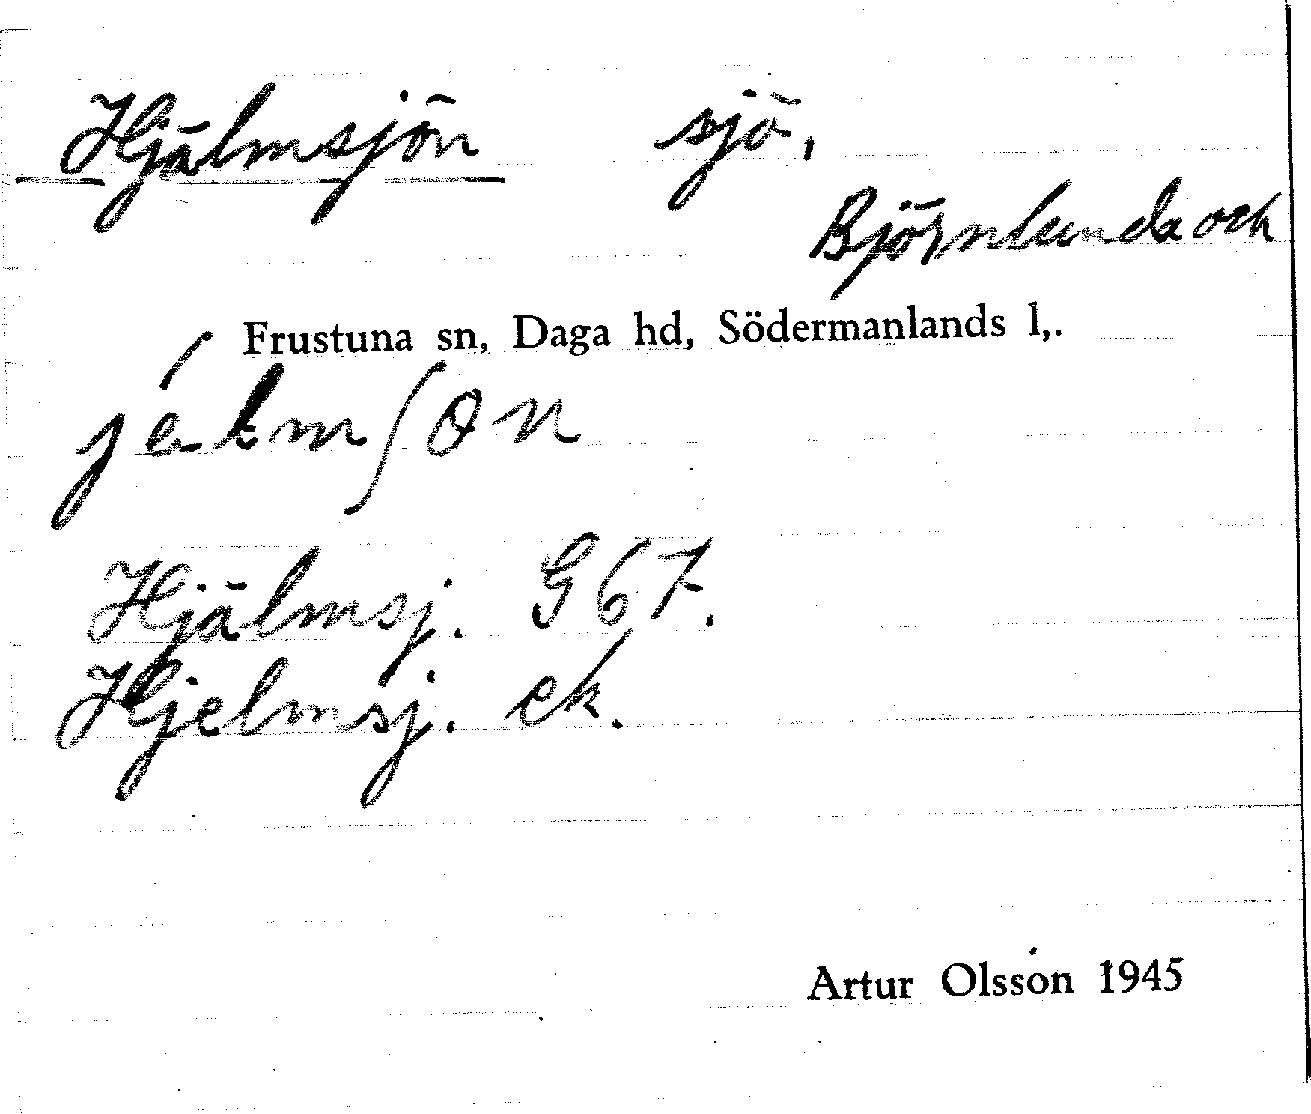 Hjälmsjön sjö,
Björnlunda och
Frustuna sn, Daga hd, Södermanlands l,.
jélmʃøn
Hjälmsj. G67.
Hjelmsj. ek.
Artur Olsson 1945